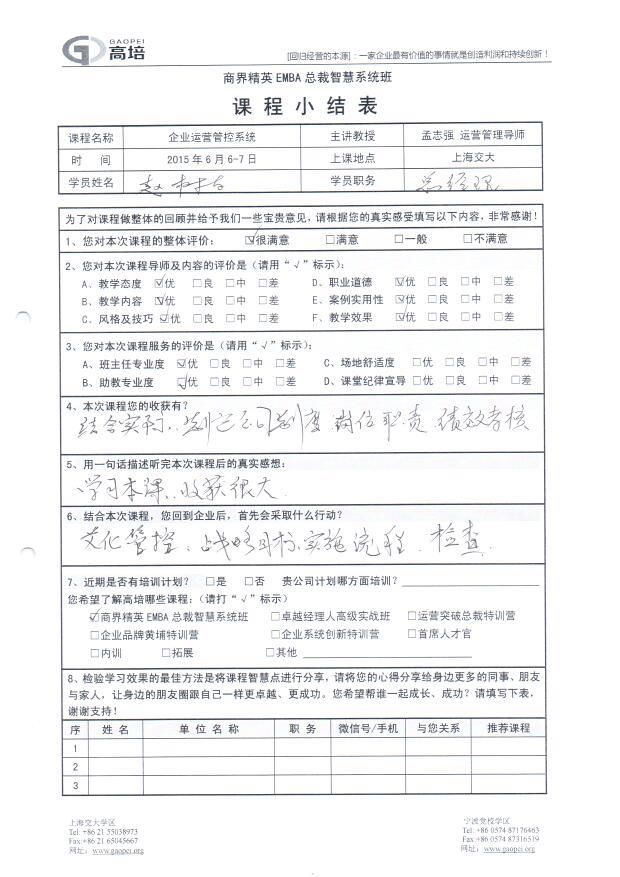 GAOPEI
高培
[回归经营的本源]：一家企业最有价值的事情就是创造利润和持续创新！
商界精英 EMBA 总裁智慧系统班
课 程 小 结 表
课程名称 企业运营管控系统 主讲教授 孟志强 运营管理导师
时 间 2015 年 6 月 6-7 日 上课地点 上海交大
学员姓名 赵 学员职务 总经理
为了对课程做整体的回顾并给予我们一些宝贵意见，请根据您的真实感受填写以下内容，非常感谢！
1、您对本次课程的整体评价： ☑很满意 □满意 □一般 □不满意
2、您对本次课程导师及内容的评价是（请用“√”标示）：
A、教学态度 ☑优 □良 □中 □差 D、职业道德 ☑优 □良 □中 □差
B、教学内容 ☑优 □良 □中 □差 E、案例实用性 ☑优 □良 □中 □差
C、风格及技巧 ☑优 □良 □中 □差 F、教学效果 ☑优 □良 □中 □差
3、您对本次课程服务的评价是（请用“√”标示）：
A、班主任专业度 ☑优 □良 □中 □差 C、场地舒适度 □优 □良 □中 □差
B、助教专业度 ☑优 □良 □中 □差 D、课堂纪律宣导 □优 □良 □中 □差
4、本次课程您的收获有？
结合实际、制定公司制度 岗位职责 绩效考核
5、用一句话描述听完本次课程后的真实感想：
学习本课、收获很大
6、结合本次课程，您回到企业后，首先会采取什么行动？
文化管控、战略目标、实施流程、检查
7、近期是否有培训计划？ □是 □否 贵公司计划哪方面培训？
您希望了解高培哪些课程：（请打“√”标示）
☑商界精英 EMBA 总裁智慧系统班 □卓越经理人高级实战班 □运营突破总裁特训营
□企业品牌黄埔特训营 □企业系统创新特训营 □首席人才官
□内训 □拓展 □其他
8、检验学习效果的最佳方法是将课程智慧点进行分享，请将您的心得分享给身边更多的同事、朋友
与家人，让身边的朋友圈跟自己一样更卓越、更成功。您希望帮谁一起成长、成功？请填写下表，
谢谢支持！
序 姓 名 单 位 名 称 职 务 微信号/手机 与您关系 推荐课程
1
2
3
上海交大学区 宁波党校学区
Tel: +86 21 55038973 Tel: +86 0574 87176463
Fax:+86 21 65045667 Fax:+86 0574 87316519
网址: www.gaopei.org 网址: www.gaopei.org